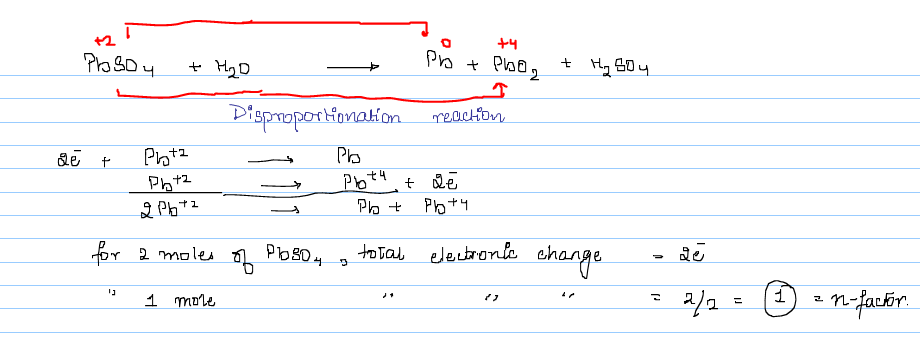 +2 0 +4
PbSO4 + H2O ⟶ Pb + PbO2 + H2SO4
Disproportionation reaction
2e̅ + Pb+2 ⟶ Pb
Pb+2 ⟶ Pb+4 + 2e̅
2Pb+2 ⟶ Pb + Pb+4
for 2 moles of PbSO4, total electronic change = 2e̅
" 1 mole " " " = 2/2 = 1 = n-factor.